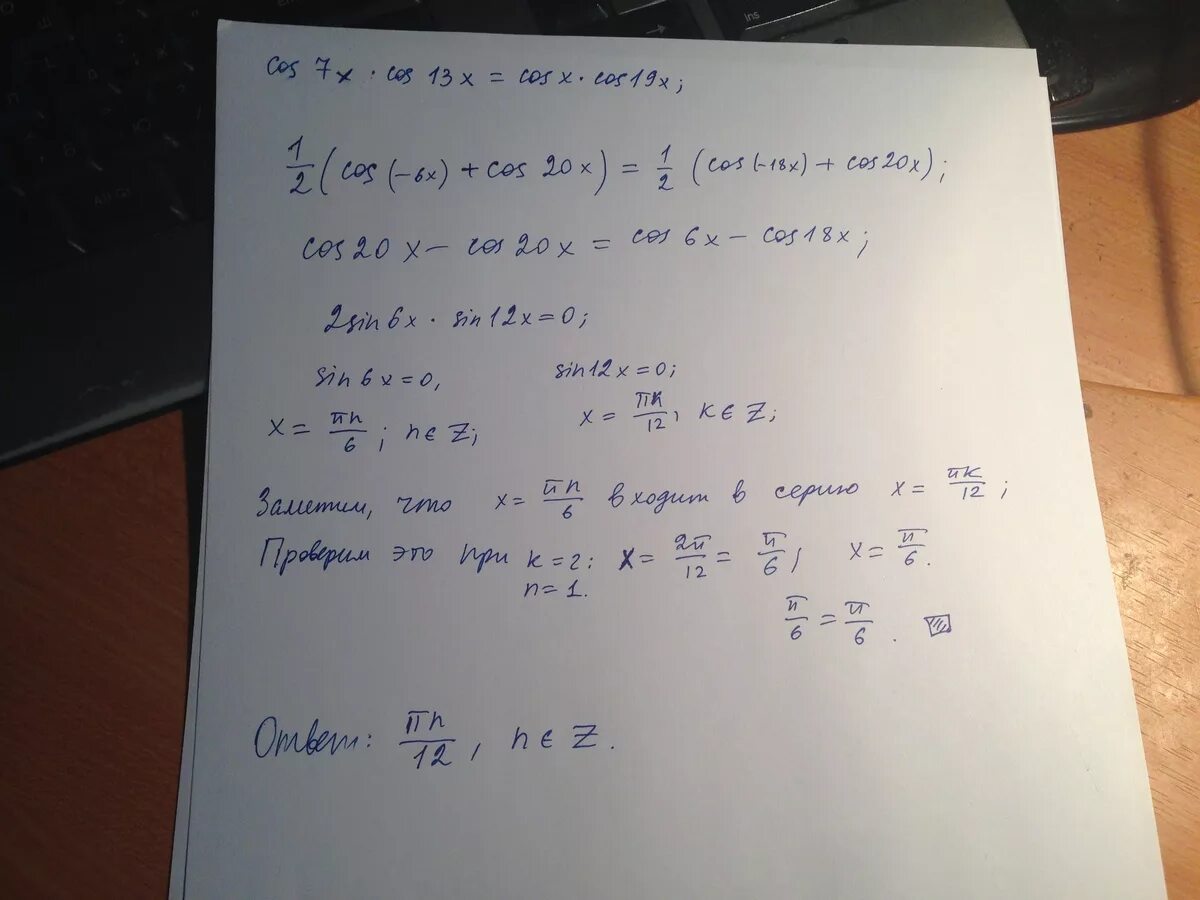 cos 7x · cos 13x = cos x · cos19x;
1/2 (cos(-6x) + cos 20x) = 1/2 (cos(-18x) + cos20x);
cos20x - cos20x = cos 6x - cos18x;
2sin6x · sin12x=0;
sin6x=0, sin12x=0;
x = πn/6; n∈Z; x = πk/12, k∈Z;
Заметим, что x= πn/6 входит в серию x= πk/12;
Проверим это при k=2: x= 2π/12 = π/6, x= π/6.
n=1.
π/6 = π/6.
Ответ: πn/12, n∈Z.